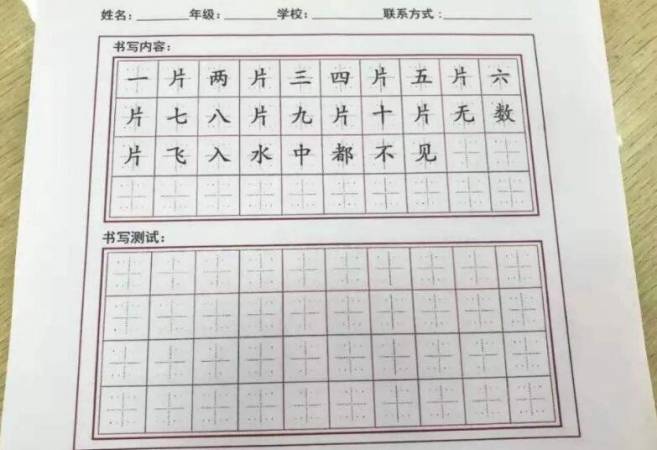 姓名：________年级：________学校：__________联系方式：____________
书写内容：
一片两片三四片五片六
片七八片九片十片无数
片飞入水中都不见
书写测试：